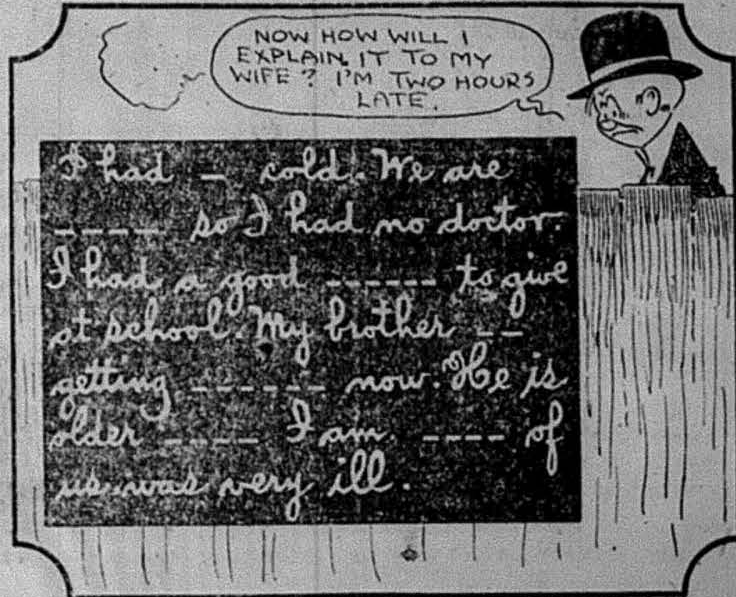 NOW HOW WILL I
EXPLAIN IT TO MY
WIFE? I'M TWO HOURS
LATE.
I had _ cold. We are
_ _ _ _ so I had no doctor.
I had a good _ _ _ _ _ _ to give
at school. My brother _ _
getting _ _ _ _ _ _ now. He is
older _ _ _ _ I am. _ _ _ _ of
us was very ill.